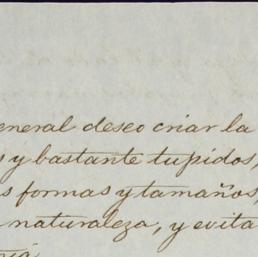 eneral deseo criar la
s y bastante tupidos,
s formas y tamaños,
naturaleza, y evita